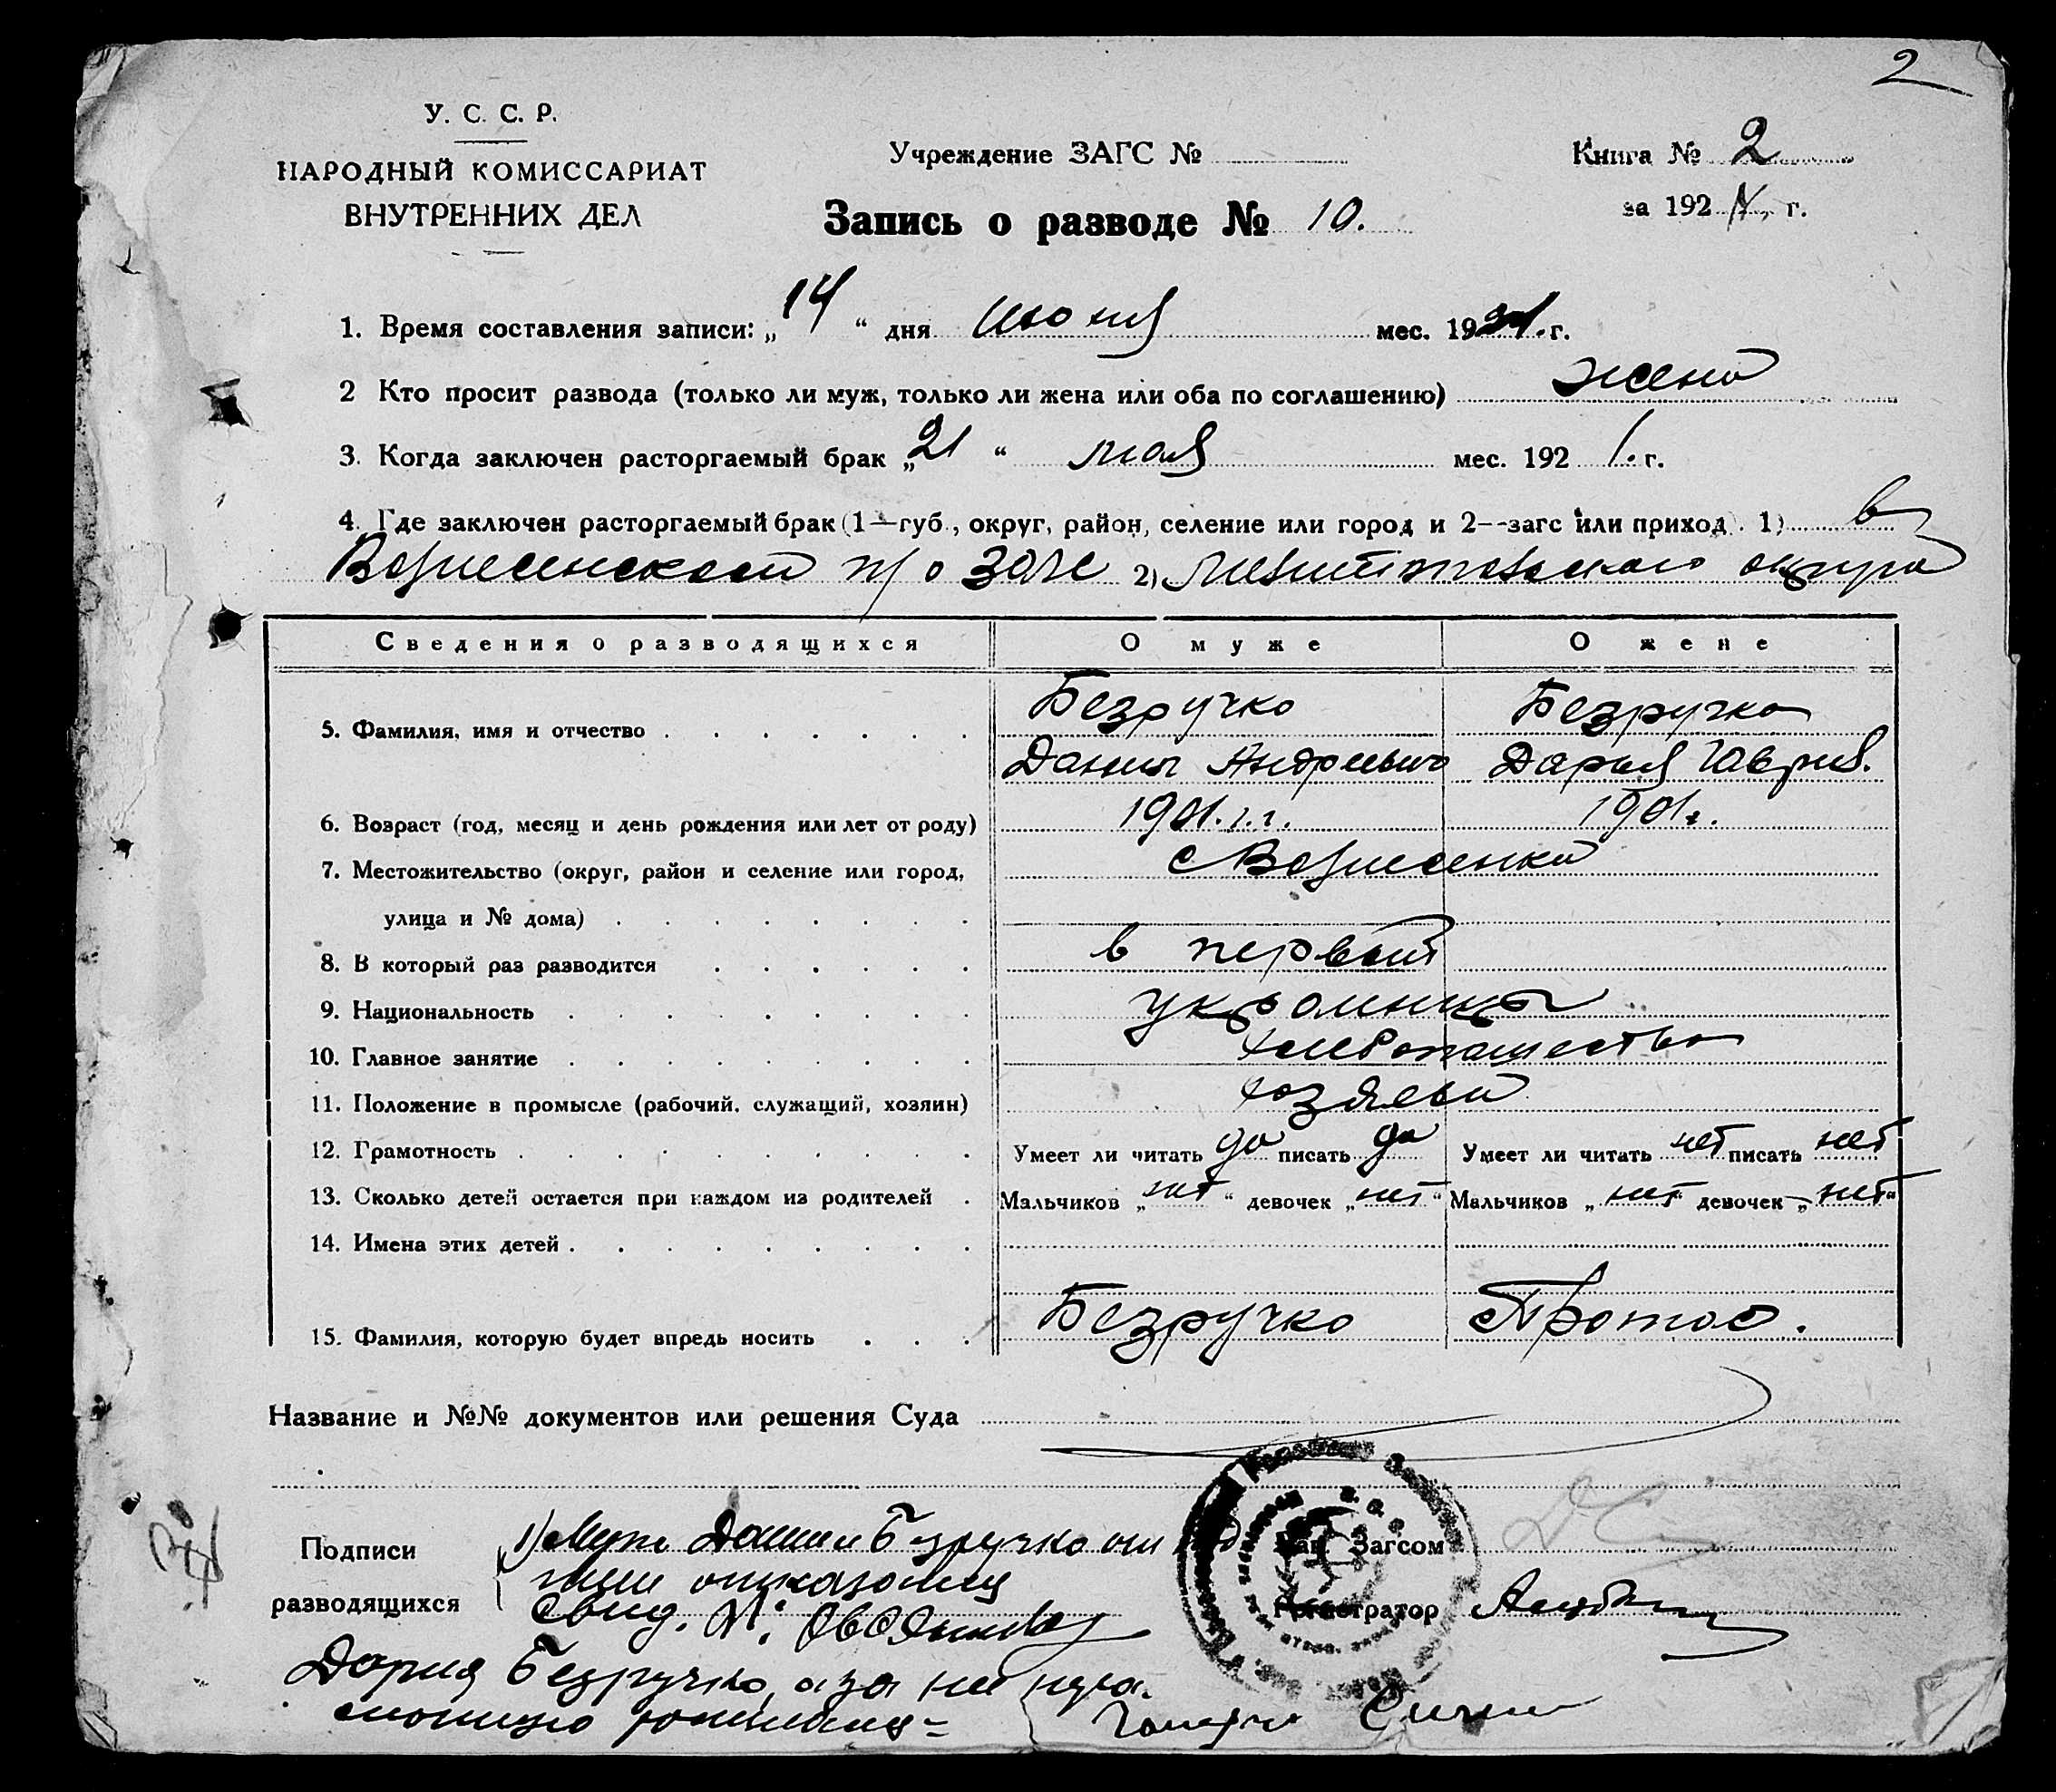 2
У. С. С. Р.
НАРОДНЫЙ КОМИССАРИАТ
ВНУТРЕННИХ ДЕЛ
Учреждение ЗАГС №
Запись о разводе № 10.
Книга № 2
за 192 г.
1. Время составления записи: „14“ дня июня мес. 19 г.
2 Кто просит развода (только ли муж, только ли жена или оба по соглашению) жена
3. Когда заключен расторгаемый брак „21“ мая мес. 192 1. г.
4. Где заключен расторгаемый брак (1—губ., округ, район, селение или город и 2--загс или приход). 1) в
Вознесенском п/о Загс 2) Мелитопольского округа
Сведения о разводящихся О муже О жене
5. Фамилия, имя и отчество Безручко Безручко
Данил Андреевич Дарья Гаврил.
6. Возраст (год, месяц и день рождения или лет от роду) 1901. г. 1901 г.
7. Местожительство (округ, район и селение или город, с Вознесенка
улица и № дома)
8. В который раз разводится в первый
9. Национальность украинцы
10. Главное занятие хлебопашество
11. Положение в промысле (рабочий, служащий, хозяин) хозяева
12. Грамотность Умеет ли читать да писать да Умеет ли читать нет писать нет
13. Сколько детей остается при каждом из родителей Мальчиков „нет“ девочек „нет“ Мальчиков „нет“ девочек „нет“
14. Имена этих детей
15. Фамилия, которую будет впредь носить Безручко Протас.
Название и №№ документов или решения Суда
Подписи 1) Муж Данил Безручко от Зав. Загсом
разводящихся Свид. Регистратор
Дария Безручко, а за не